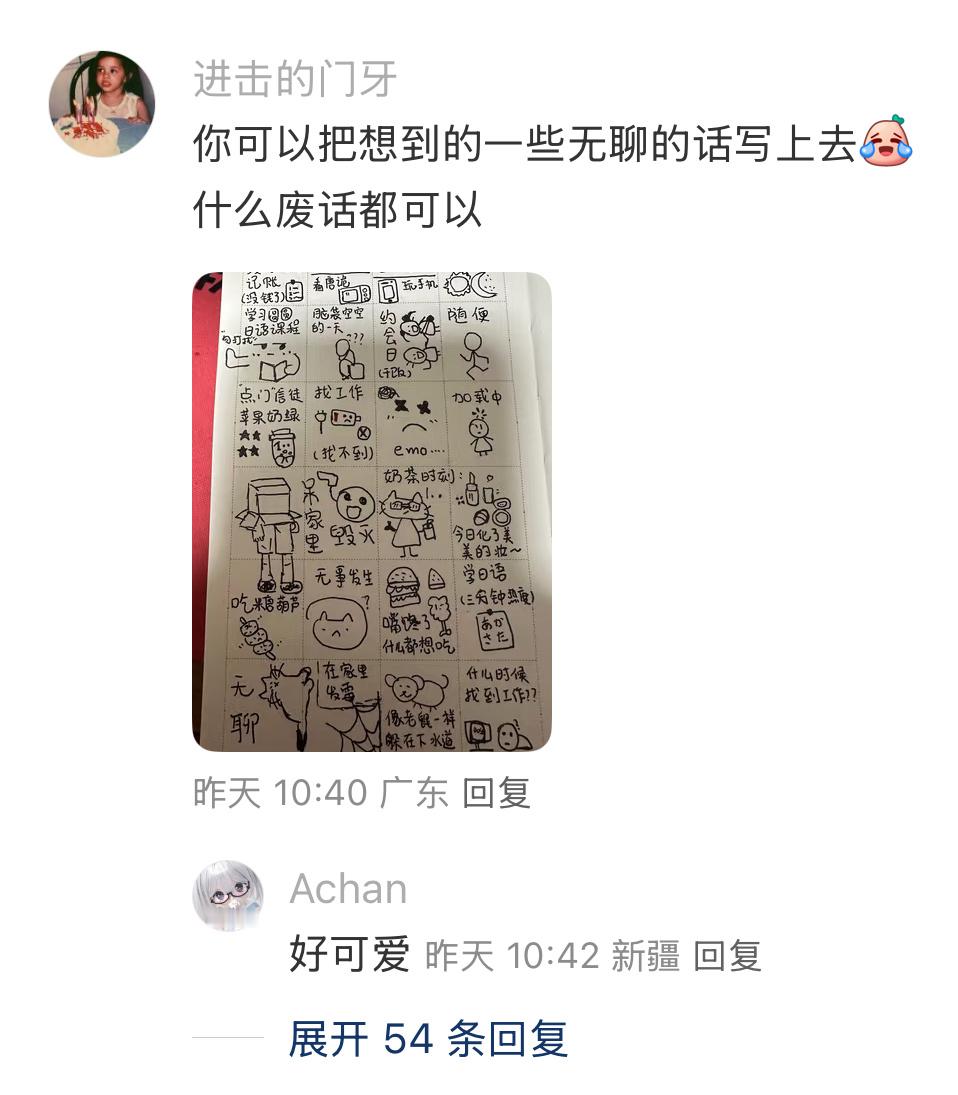 进击的门牙
你可以把想到的一些无聊的话写上去
什么废话都可以
记账
(没钱了)
看唐诡
玩手机
学习圆圆
日语课程
脑袋空空
的一天
???
约
会
日
(干饭)
随便
点门信徒
苹果奶绿
找工作
(找不到)
emo....
加载中
呆
家
里
毁灭
奶茶时刻
今日化了美
美的妆~
吃糖葫芦
无事发生
?
嘴馋了
什么都想吃
学日语
(三分钟热度)
あか
さた
无
聊
在家里
发霉
像老鼠一样
躲在下水道
什么时候
找到工作??
昨天 10:40 广东 回复
Achan
好可爱 昨天 10:42 新疆 回复
展开 54 条回复